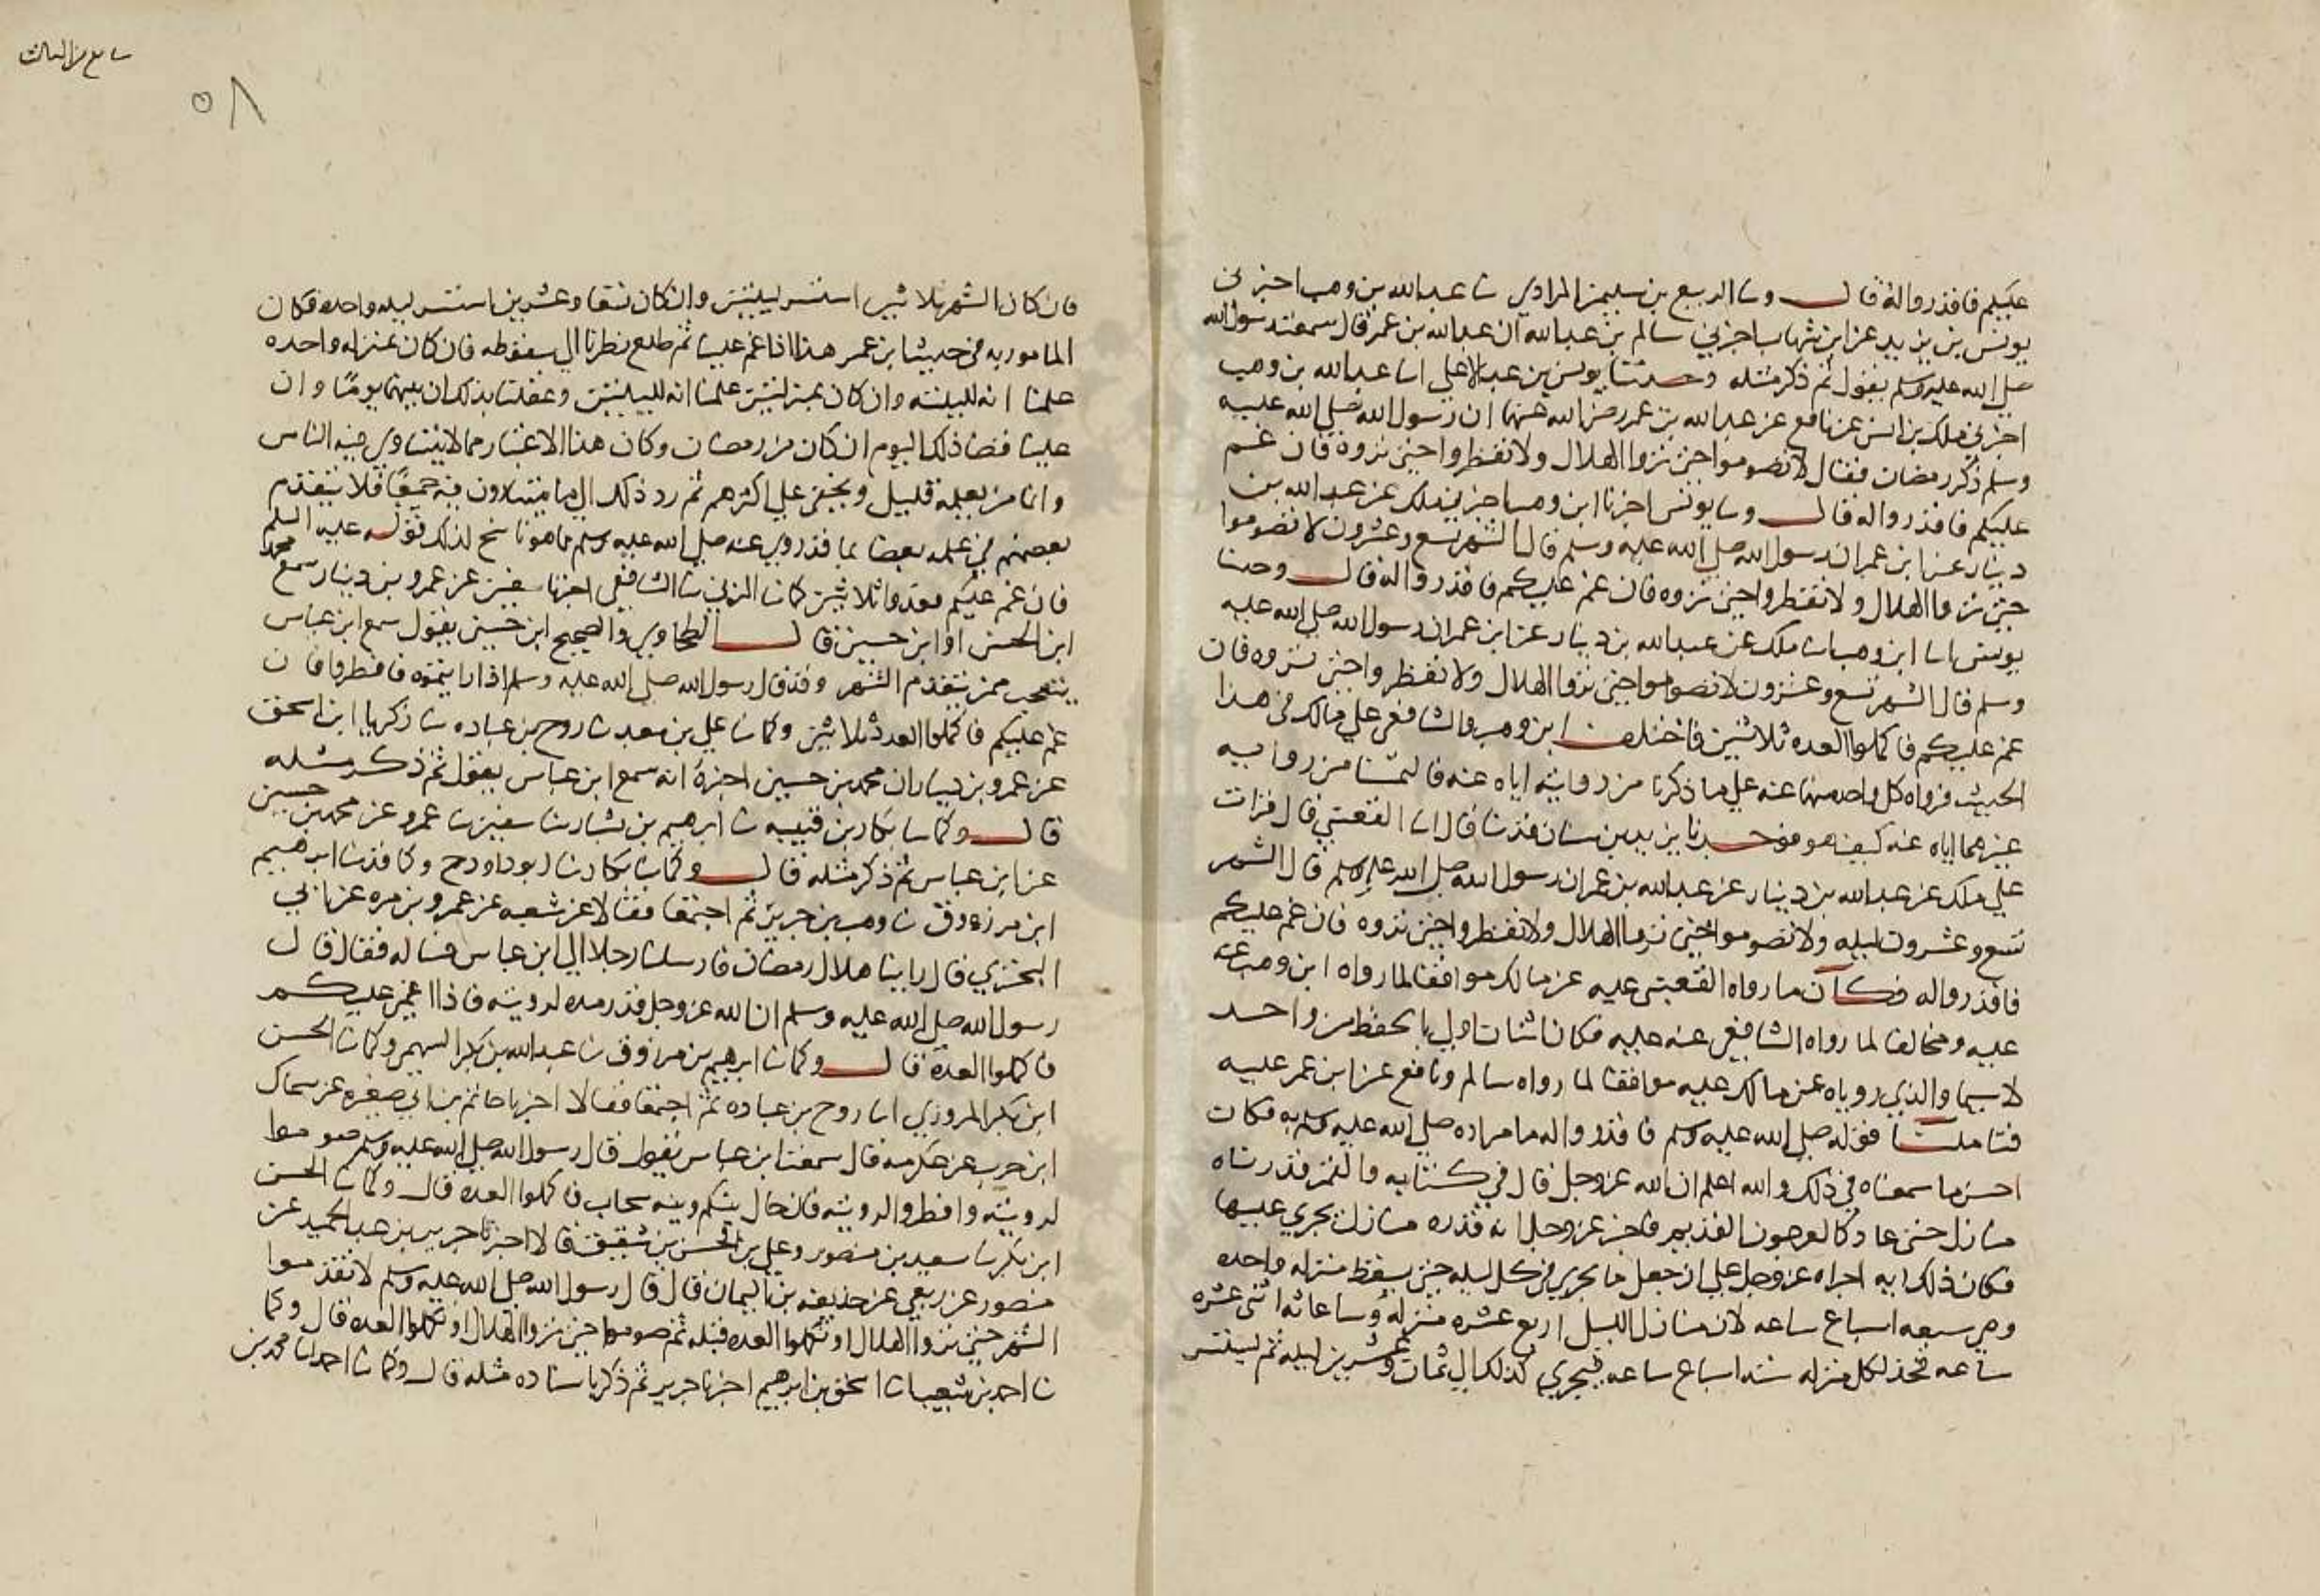 عليكم فاقدروا له قال وسا الربيع بن سليمن المرادي سا عبد الله بن وهب اخبرني
يونس بن يزيد عن ابن شهاب اخبرني سالم بن عبد الله ان عبد الله بن عمر قال سمعت رسول الله
صلى الله عليه وسلم يقول ثم ذكر مثله وحدثنا يونس بن عبد الاعلي انا عبد الله بن وهب
اخبرني ملك بن انس عن نافع عن عبد الله بن عمر رضي الله عنهما ان رسول الله صلى الله عليه
وسلم ذكر رمضان فقال لا تصوموا حتى تروا الهلال ولا تفطروا حتى تروه فان غم
عليكم فاقدروا له قال وسا يونس اخبرنا ابن وهب اخبرني ملك عن عبد الله بن
دينار عن ابن عمر ان رسول الله صلى الله عليه وسلم قال الشهر تسع وعشرون لا تصوموا
حتى تروا الهلال ولا تفطروا حتى تروه فان غم عليكم فاقدروا له قال وحدثنا
يونس انا ابن وهب ان ملك عن عبد الله بن دينار عن ابن عمر ان رسول الله صلى الله عليه
وسلم قال الشهر تسع وعشرون لا تصوموا حتى تروا الهلال ولا تفطروا حتى تروه فان
غم عليكم فاكملوا العده ثلاثين فاختلف ابن وهب والشافعي علي مالك في هذا
الحديث فرواه كل واحد منهما عنه علي ما ذكرنا من روايته اياه عنه فالتمسنا من روايه
غيرهما اياه عنه كيف هو فوحدنا يزيد بن سنان قد سا قال انا القعنبي قال قرات
علي ملك عن عبد الله بن دينار عن عبد الله بن عمر ان رسول الله صلى الله عليه وسلم قال الشهر
تسع وعشرون ليله ولا تصوموا حتى تروا الهلال ولا تفطروا حتى تروه فان غم عليكم
فاقدروا له فكان ما رواه القعنبي عليه عن مالك موافقا لما رواه ابن وهب عنه
عليه ومخالفا لما رواه الشافعي عنه عليه فكان اثنان اولي بالحفظ من واحد
لا سيما والذي روياه عن مالك عليه موافقا لما رواه سالم ونافع عن ابن عمر عليه
فتاملنا قوله صلى الله عليه وسلم فاقدروا له ما مراده صلى الله عليه وسلم به فكان
احسن ما سمعناه في ذلك والله اعلم ان الله عز وجل قال في كتابه والقمر قدرناه
منازل حتى عاد كالعرجون القديم فاخبر عز وجل انه قدره منازل يجري عليها
فكان ذلك ايه اجراه عز وجل علي ان جعل ما يجري في كل ليله حتى يسقط منزله واحده
وهي سبعه اسباع ساعه لان منازل الليل اربع عشره منزله وساعاته اثني عشره
ساعه فحذ لكل منزله سته اسباع ساعه فيجري كذلك الي ثمان وعشرين ليله ثم يستسر
سابع من الثالث
٥٨
فان كان الشهر ثلاثين استسر ليلتين وان كان تسعا وعشرين استسر ليله واحده فكان
المامور به في حديث ابن عمر هذا اذا غم علينا ثم طلع نظرنا الي سقوطه فان كان لمنزله واحده
علمنا انه لليلته وان كان لمنزلتين علمنا انه لليلتين وعقلنا بذلك ان بينهما يومًا وان
علينا قضا ذلك اليوم ان كان من رمضان وكان هذا الاعتبار مما لا يتساوي فيه الناس
وانما من يعلمه قليل ويخفي علي اكثرهم ثم رد ذلك الي ما يتساوون فيه جميعًا فلا يتقدم
بعضهم في علمه بعضا بما قد روي عنه صلى الله عليه وسلم مما هو ناسخ لذلك بقوله عليه السلم
فان غم عليكم فعدوا ثلاثين كما سا المزني سا الشافعي اخبرنا سفين عن عمرو بن دينار سمع محمد
ابن الحسن او ابن حسين قال الطحاوي والصحيح ابن حسين يقول سمع ابن عباس
يتعجب ممن يتقدم الشهر وقد قال رسول الله صلى الله عليه وسلم اذا رايتموه فافطروا فان
غم عليكم فاكملوا العدد ثلاثين وكما سا علي بن معبد سا روح بن عباده سا زكريا ابن اسحق
عن عمرو بن دينار ان محمد بن حسين اخبره انه سمع ابن عباس يقول ثم ذكر مثله
قال وكما سا بكار بن قتيبه سا ابرهيم بن بشار سا سفين سا عمرو عن محمد بن حسين
عن ابن عباس ثم ذكر مثله قال وكما سا بكار سا ابو داود ح وكما قد سا ابرهيم
ابن مرزوق سا وهب بن جرير ثم اجتمعا فقالا عن شعبه عن عمرو بن مره عن ابي
البختري قال راينا هلال رمضان فارسلنا رجلا الي ابن عباس فساله فقال قال
رسول الله صلى الله عليه وسلم ان الله عز وجل قد مده لرويته فاذا اغمي عليكم
فاكملوا العدة قال وكما سا ابرهيم بن مرزوق سا عبد الله بن بكر السهمي وكما سا الحسن
ابن بكر المروزي انا روح بن عباده ثم اجتمعا فقالا اخبرنا حاتم بن ابي صغيره عن سماك
ابن حرب عن عكرمه قال سمعت ابن عباس يقول قال رسول الله صلى الله عليه وسلم صوموا
لرويته وافطروا لرويته فان حال بينكم وبينه سحاب فاكملوا العده قال وكما سا الحسن
ابن بكر سا سعيد بن منصور وعلي بن الحسن بن شقيق قالا اخبرنا جرير بن عبد الحميد عن
منصور عن ربعي عن حذيفه بن اليمان قال قال رسول الله صلى الله عليه وسلم لا تقدموا
الشهر حتى تروا الهلال او تكملوا العده قبله ثم صوموا حتى تروا الهلال او تكملوا العده قال وكما
سا احمد بن شعيب انا اسحق بن ابرهيم اخبرنا جرير ثم ذكر باسناده مثله قال وكما سا احمد انا محمد بن